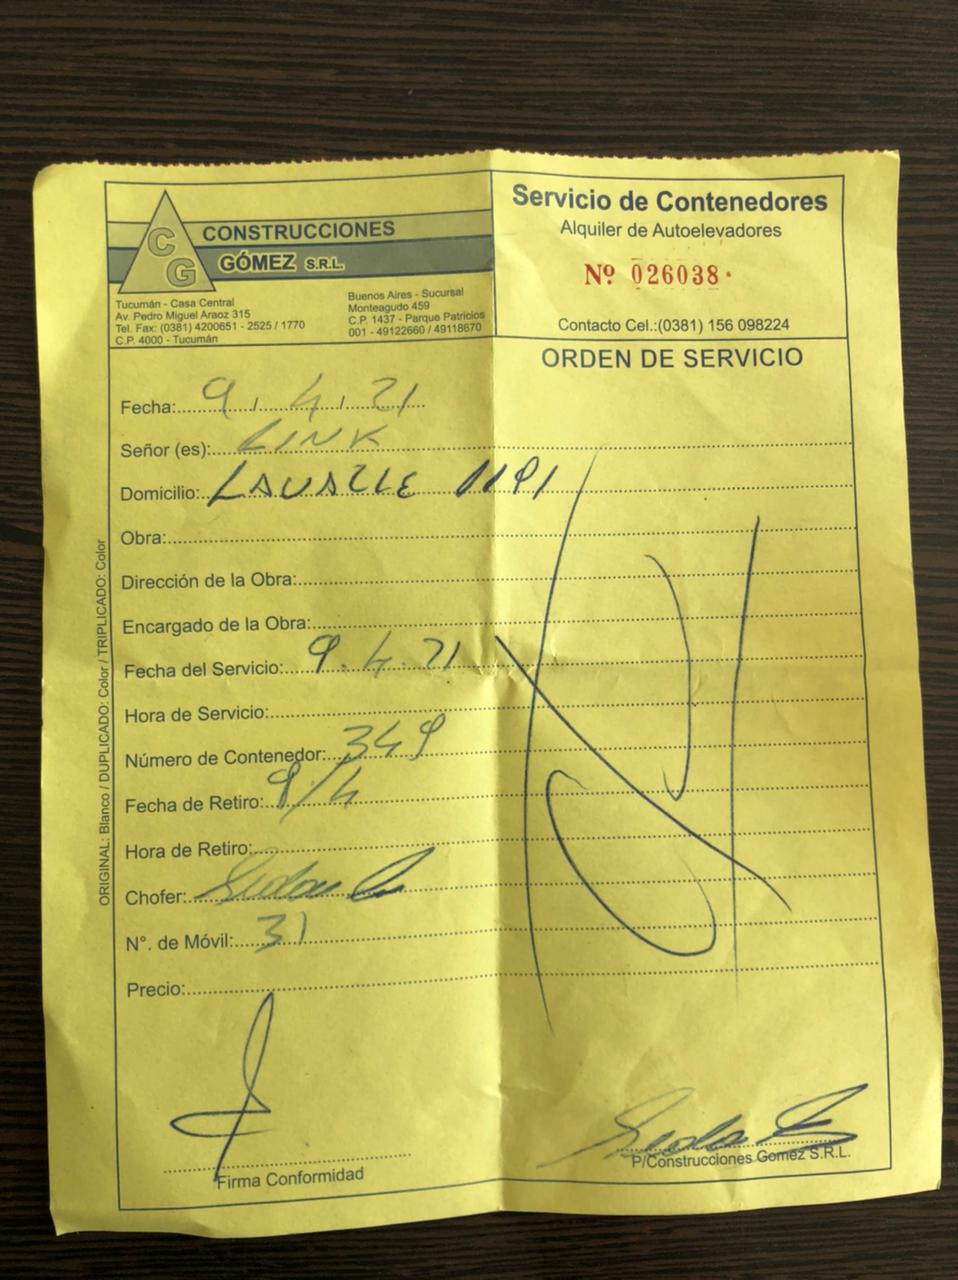 CG
CONSTRUCCIONES
GÓMEZ S.R.L.
Tucumán - Casa Central
Av. Pedro Miguel Araoz 315
Tel. Fax: (0381) 4200651 - 2525 / 1770
C.P. 4000 - Tucumán
Buenos Aires - Sucursal
Monteagudo 459
C.P. 1437 - Parque Patricios
001 - 49122660 / 49118670
Servicio de Contenedores
Alquiler de Autoelevadores
Nº 026038
Contacto Cel.:(0381) 156 098224
ORDEN DE SERVICIO
Fecha: 9 / 4 / 21
Señor (es): LINK
Domicilio:
Obra:
Dirección de la Obra:
Encargado de la Obra:
Fecha del Servicio: 9.4.21
Hora de Servicio:
Número de Contenedor: 349
Fecha de Retiro: 9/4
Hora de Retiro:
Chofer:
N°. de Móvil: 31
Precio:
Firma Conformidad
P/Construcciones Gomez S.R.L.
ORIGINAL: Blanco / DUPLICADO: Color / TRIPLICADO: Color